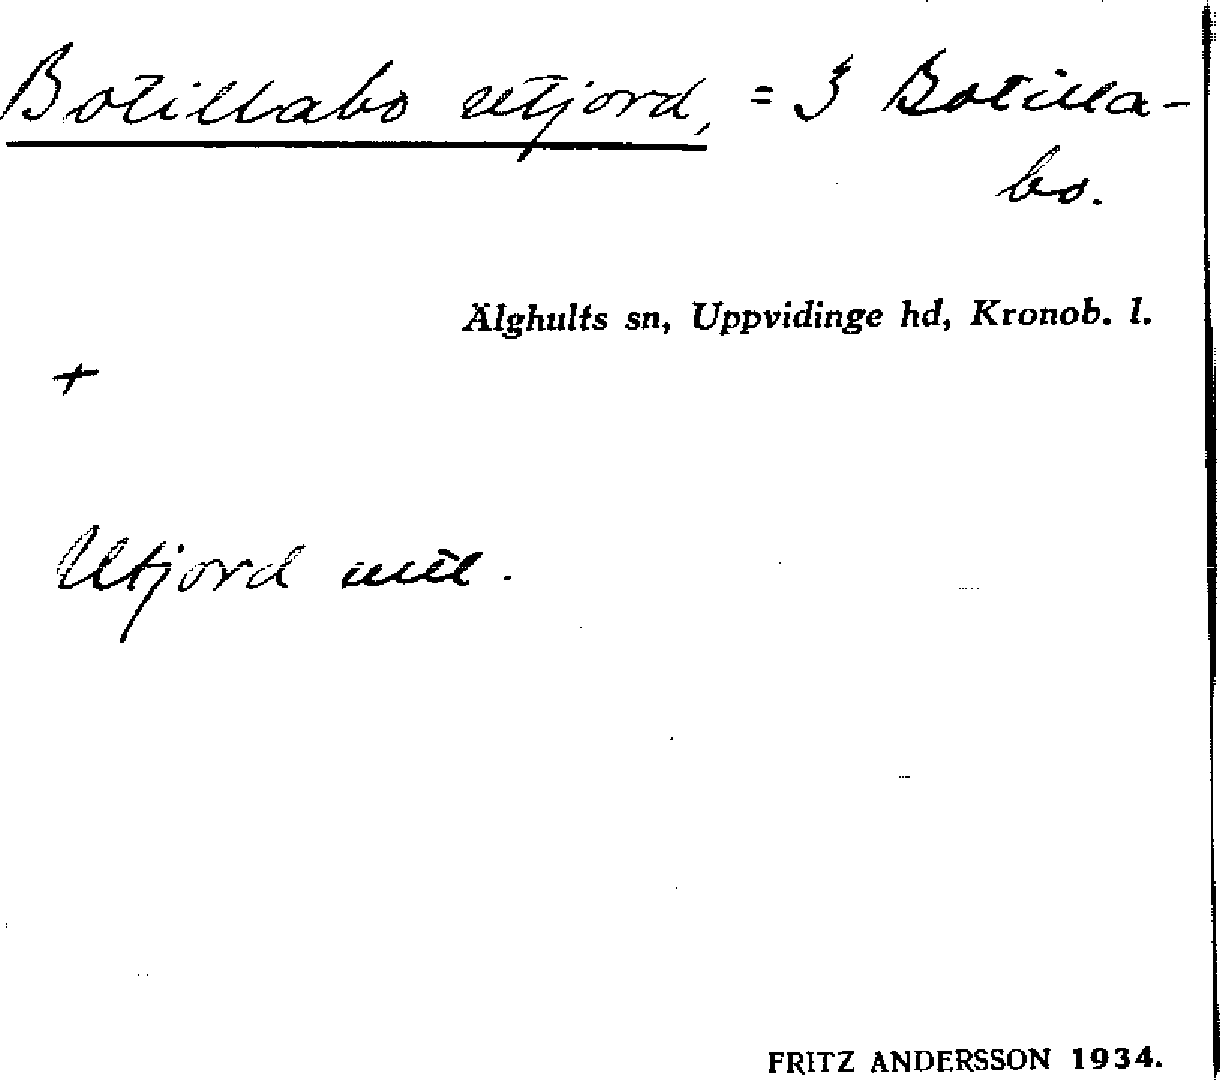 Botillabo utjord, = 3 Botilla-
bo.
Älghults sn, Uppvidinge hd, Kronob. l.
+
Utjord
FRITZ ANDERSSON 1934.